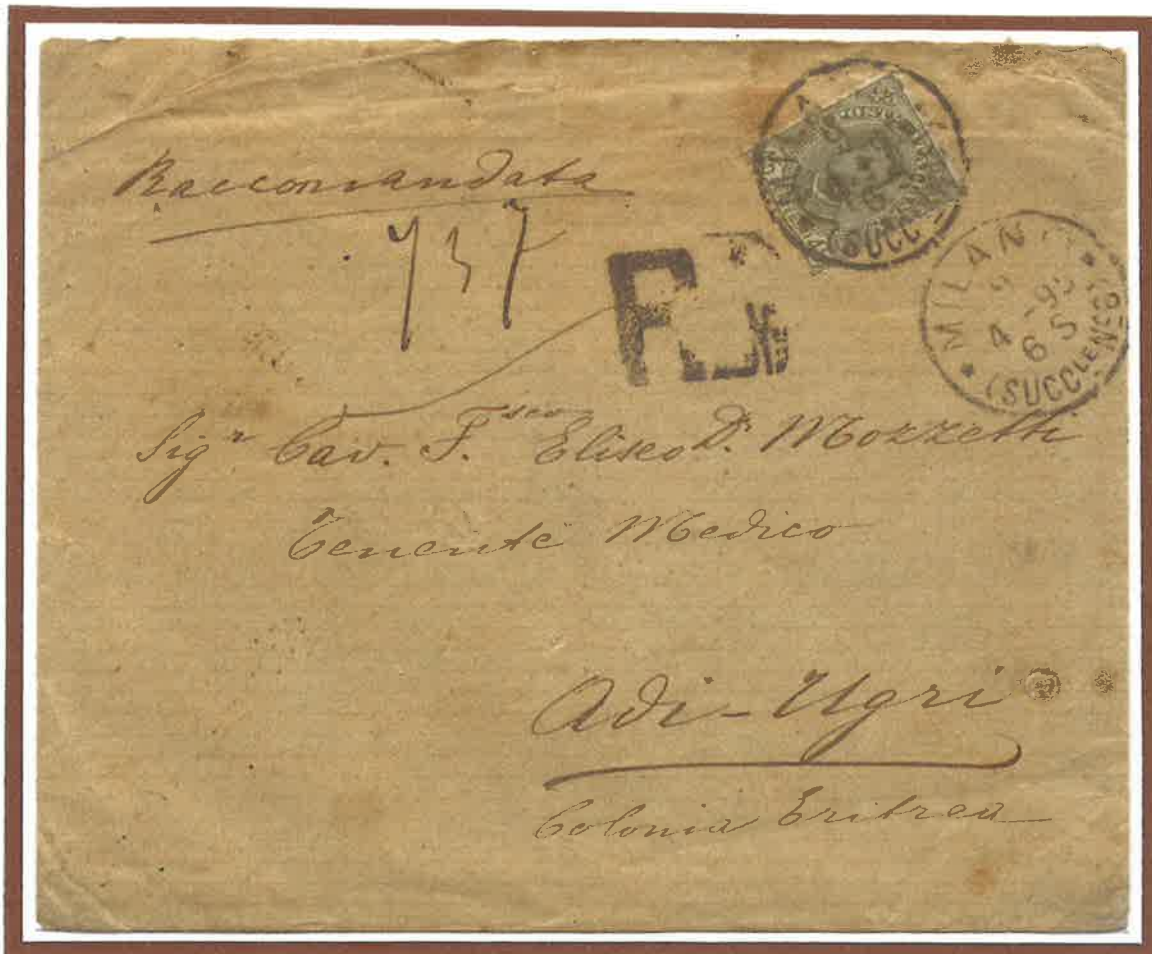 Raccomandata
737
R
MILANO
9
4 - 95
6 S
(SUCCLE N°5)
(SUCC
Sigr Cav. F.sco Eliseo Dr. Mozzetti
Tenente Medico
Adi-Ugri
Colonia Eritrea